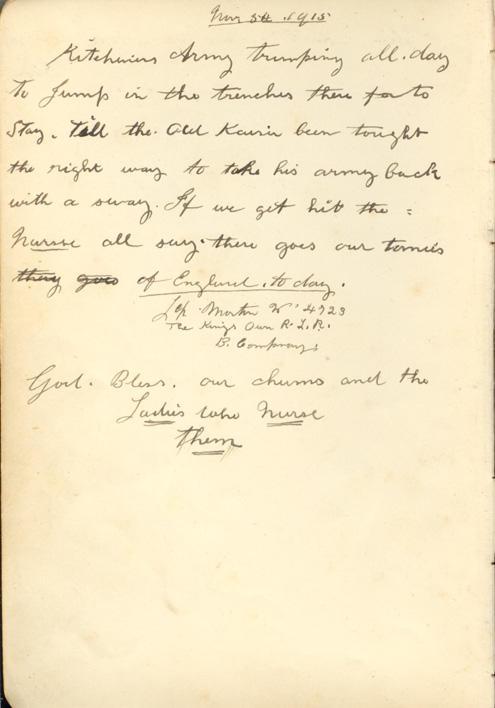 Nov 5th 1915
Kitcheners Army tramping all day
To Jump in the trenches there for to
Stay. Till the Old Kaisir been tought
the right way to take his army back
with a sway. If we get hit the =
Nursse all say there goes our tomies
they goes of England. to day.
L/Cp. Martin W. 4723
The Kings Own R. L. R.
B. Company.
God. Bless. our chums and the
Ladies who Nurse
them